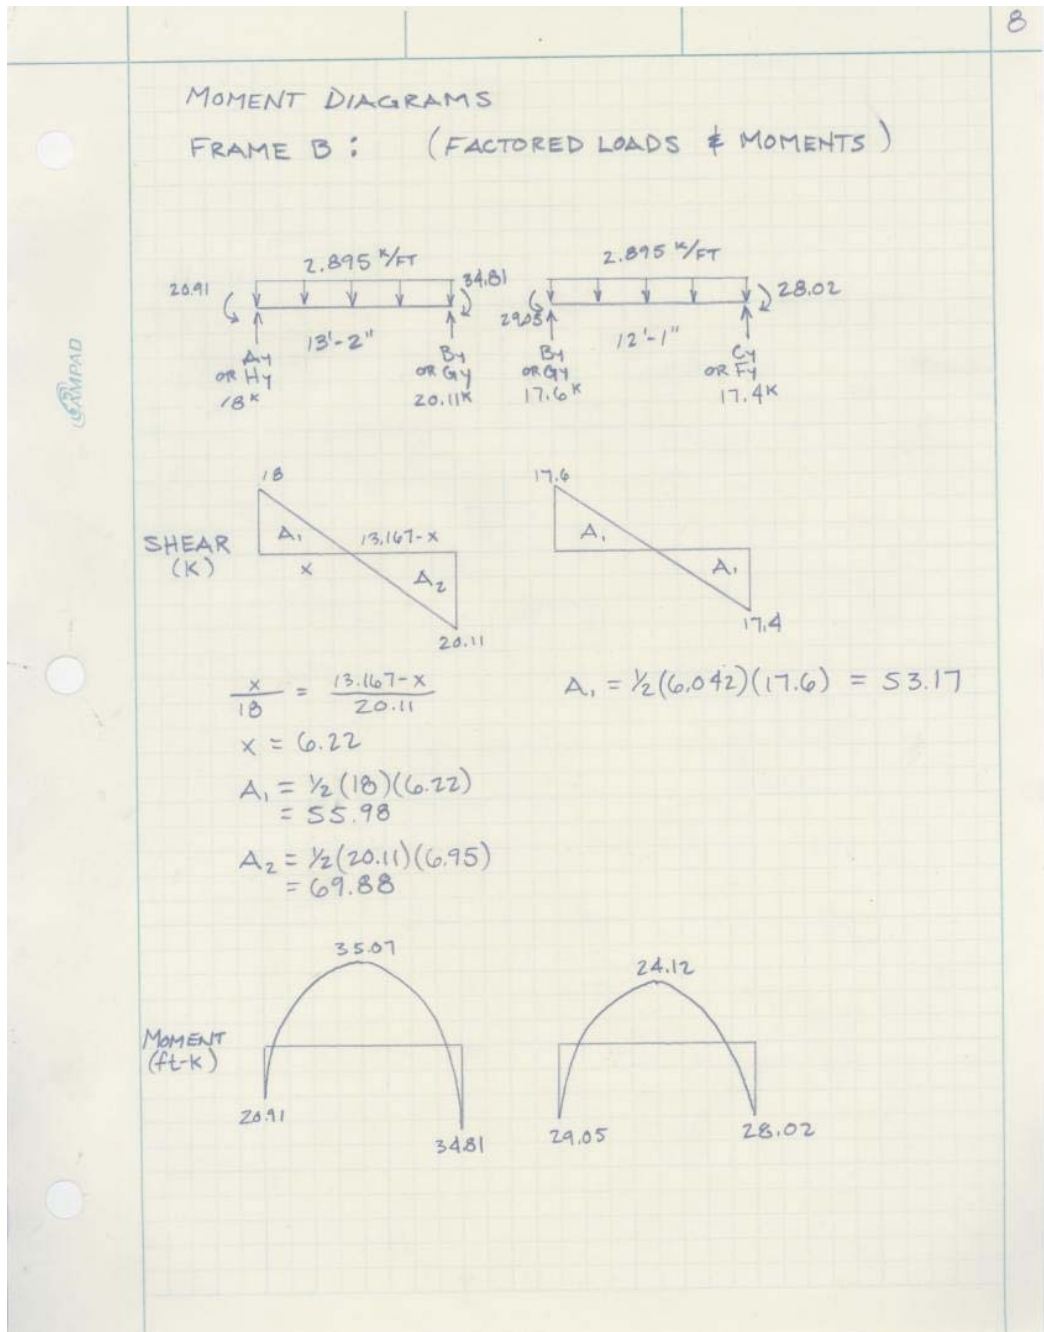 8
MOMENT DIAGRAMS
FRAME B : (FACTORED LOADS & MOMENTS)
2.895 K/FT
20.91
34.81
13'-2"
Ay
OR Hy
18 K
By
OR Gy
20.11K
2.895 K/FT
29.05
28.02
12'-1"
By
OR Gy
17.6 K
Cy
OR Fy
17.4K
AMPAD
SHEAR
(K)
18
A₁
13.167-x
x
A₂
20.11
17.6
A₁
A₁
17.4
x/18 = 13.167-x/20.11
x = 6.22
A₁ = ½(18)(6.22)
= 55.98
A₂ = ½(20.11)(6.95)
= 69.88
A₁ = ½(6.042)(17.6) = 53.17
MOMENT
(ft-K)
35.07
20.91
34.81
24.12
29.05
28.02